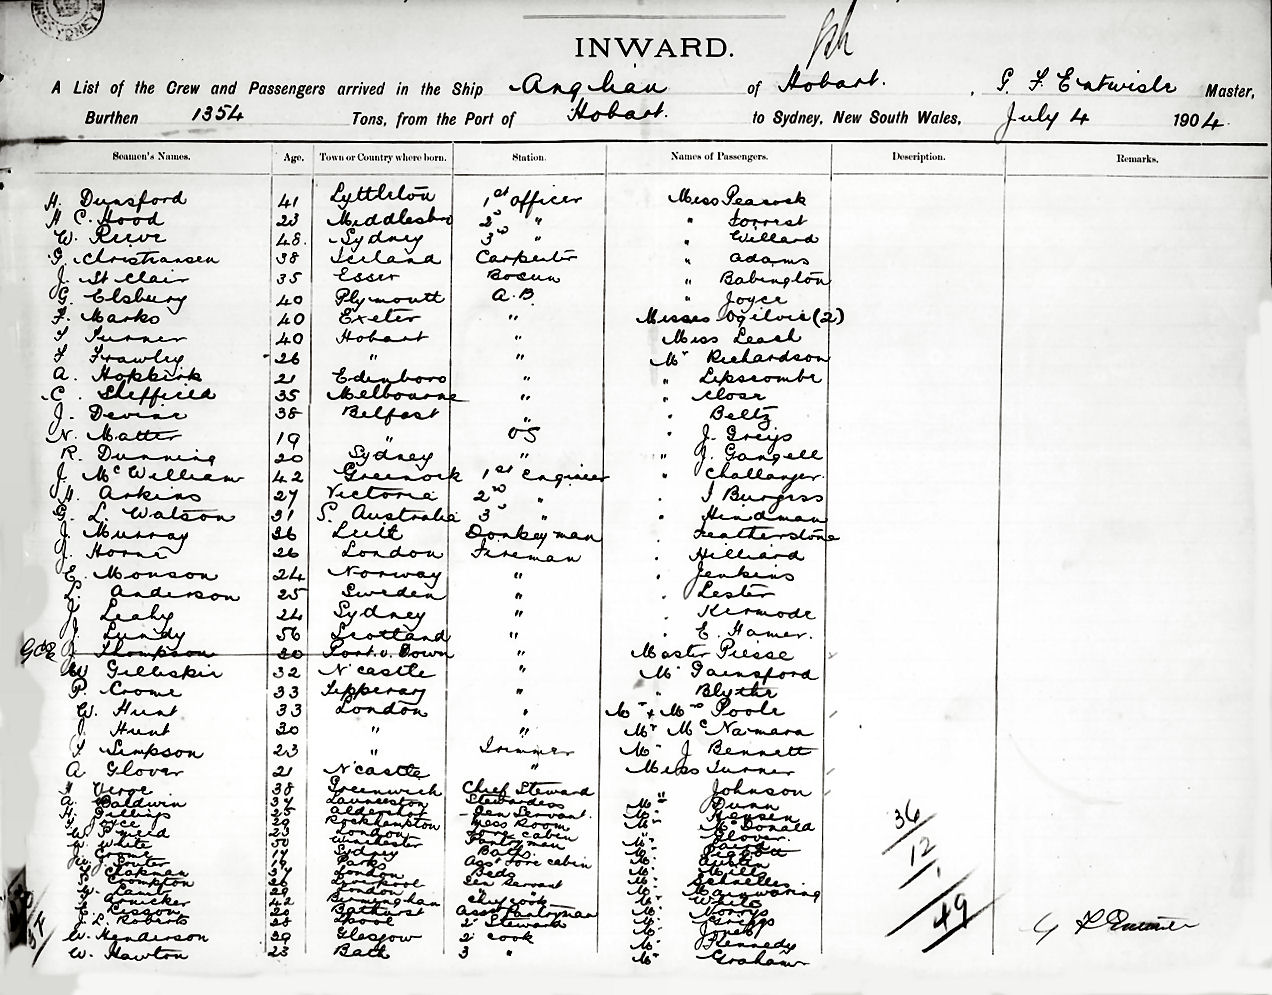 INWARD.
A List of the Crew and Passengers arrived in the Ship Anglian of Hobart. , Master,
Burthen 1354 Tons, from the Port of Hobart. to Sydney, New South Wales, July 4 1904.
Seamen's Names. Age. Town or Country where born. Station. Names of Passengers. Description. Remarks.
H. Dunsford 41 Lyttleton 1st officer Miss Peacock
H C. Hood 23 Middlesbro 2d " " Forrest
W. Reeve 48. Sydney 3d " " Willard
G. Christiansen 38 Iceland Carpenter " Adams
J. St Clair 35 Essex Bosun " Babington
G. Elsbury 40 Plymouth A.B. " Joyce
F. Marks 40 Exeter " Misses Ogilvie (2)
Turner 40 Hobart " Miss Leach
Frawley 26 " " Mr Richardson
A. Hopkirk 21 Edinboro " " Lipscombe
C. Sheffield 35 Melbourne " " Close
J. Devine 38 Belfast " " Beltz
N. Matter 19 " OS " J. Greys
R. Dunning 20 Sydney " " J. Gangell
J. McWilliam 42 Greenock 1st Engineer " Challanger
Arkins 27 Victoria 2nd " " Burgess
G. L. Watson 31 S. Australia 3d " " Hindman
J. Murray 36 Leith Donkeyman " Featherstone
J. Horne 26 London Fireman " Hilliard
E. Monson 24 Norway " " Jenkins
Anderson 25 Sweden " " Lester
J. Leahy 24 Sydney " " Kermode
J. Lundy 56 Scotland " " E. Hamer.
J. Thompson 30 " Master Piesse
W Gillespie 32 N'castle " Mr Gainsford
P. Crome 33 Tipperary " " Blythe
W. Hunt 33 London " Mr & Mrs Poole
J. Hunt 30 " " Mr McNamara
Simpson 23 " Trimmer Mr J Bennett
A Glover 21 N'castle " Miss Turner
Verge 38 Greenwich Chief Steward " Johnson
A. Baldwin 37 Launceston Stewardess Mr Dunn
25 Aldershot Gen Servant. Mr Hensen
29 Rockhampton Mess Room Mr McDonald
23 London Fore cabin Glover
White 50 Winchester Pantryman
Crome Sydney Baths
Souter 19 Asst Fore cabin Austin
Chapman 37 London Beds Mills
Crompton Liverpool Gen Servant
London " Mainwaring
42 Birmingham Chief cook White
Sisson Bathurst Asst Pantryman Norrys
L. Roberts 28 2d Steward
W. Henderson 39 Glasgow 2 cook Kennedy
W. Hawton 23 Bath 3 " Mr Graham
36
12
1
49